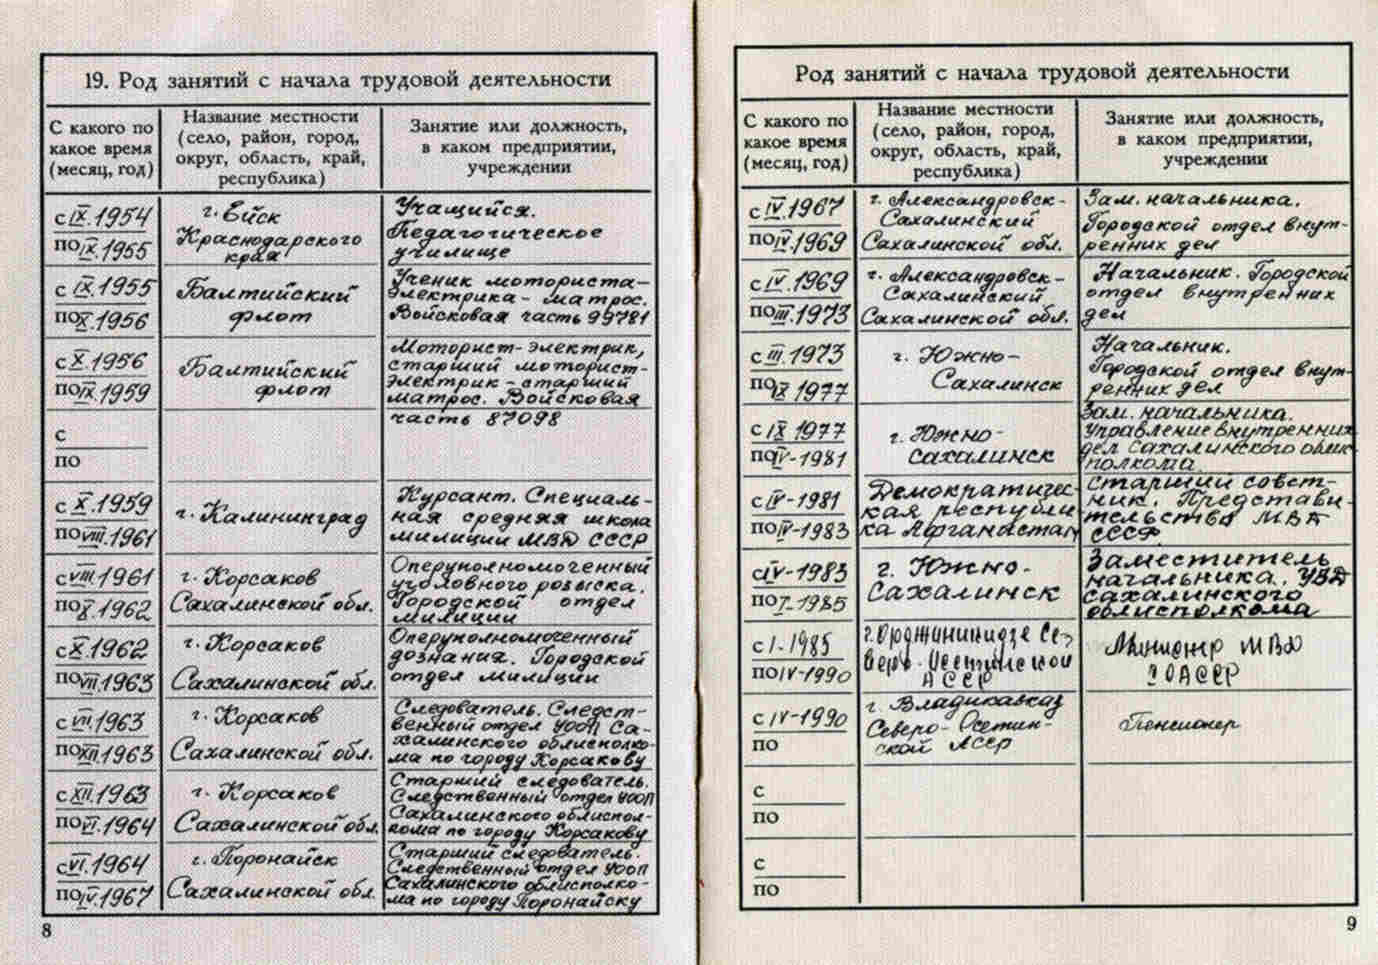 19. Род занятий с начала трудовой деятельности
С какого по какое время (месяц, год)
Название местности (село, район, город, округ, область, край, республика)
Занятие или должность, в каком предприятии, учреждении
с IX.1954
по IX.1955
г. Ейск
Краснодарского
края
Учащийся.
Педагогическое
училище
с IX.1955
по X.1956
Балтийский
флот
Ученик моториста-
электрика - матрос.
Войсковая часть 99781
с X.1956
по IX.1959
Балтийский
флот
Моторист-электрик,
старший моторист-
электрик - старший
матрос. Войсковая
часть 87098
с
по
с X.1959
по VIII.1961
г. Калининград
Курсант. Специаль-
ная средняя школа
милиции МВД СССР
с VIII.1961
по X.1962
г. Корсаков
Сахалинской обл.
Оперуполномоченный
уголовного розыска.
Городской отдел
милиции
с X.1962
по VII.1963
г. Корсаков
Сахалинской обл.
Оперуполномоченный
дознания. Городской
отдел милиции
с VII.1963
по XII.1963
г. Корсаков
Сахалинской обл.
Следователь. Следст-
венный отдел УООП Са-
халинского облисполко-
ма по городу Корсакову
с XII.1963
по VI.1964
г. Корсаков
Сахалинской обл.
Старший следователь.
Следственный отдел УООП
Сахалинского облиспол-
кома по городу Корсакову
с VI.1964
по IV.1967
г. Поронайск
Сахалинской обл.
Старший следователь.
Следственный отдел УООП
Сахалинского облисполко-
ма по городу Поронайску
8
Род занятий с начала трудовой деятельности
С какого по какое время (месяц, год)
Название местности (село, район, город, округ, область, край, республика)
Занятие или должность, в каком предприятии, учреждении
с IV.1967
по IV.1969
г. Александровск-
Сахалинский
Сахалинской обл.
Зам. начальника.
Городской отдел внут-
ренних дел
с IV.1969
по III.1973
г. Александровск-
Сахалинский
Сахалинской обл.
Начальник. Городской
отдел внутренних
дел
с III.1973
по IX 1977
г. Южно-
Сахалинск
Начальник.
Городской отдел внут-
ренних дел
с IX 1977
по IV-1981
г. Южно-
сахалинск
Зам. начальника.
Управление внутренних
дел Сахалинского облис-
полкома.
с IV-1981
по IV-1983
Демократичес-
кая республи
ка Афганистан
Старший совет-
ник. Представи-
тельство МВД
СССР.
с IV-1983
по I-1985
г. Южно-
Сахалинск
Заместитель
начальника. УВД
сахалинского
облисполкома
с I-1985
по IV-1990
г. Орджиникидзе Се-
веро-Осетинской
АССР
Министр МВД
СОАССР
с IV-1990
по
г. Владикавказ
Северо-Осетин-
ской АССР
Пенсионер
с
по
с
по
9